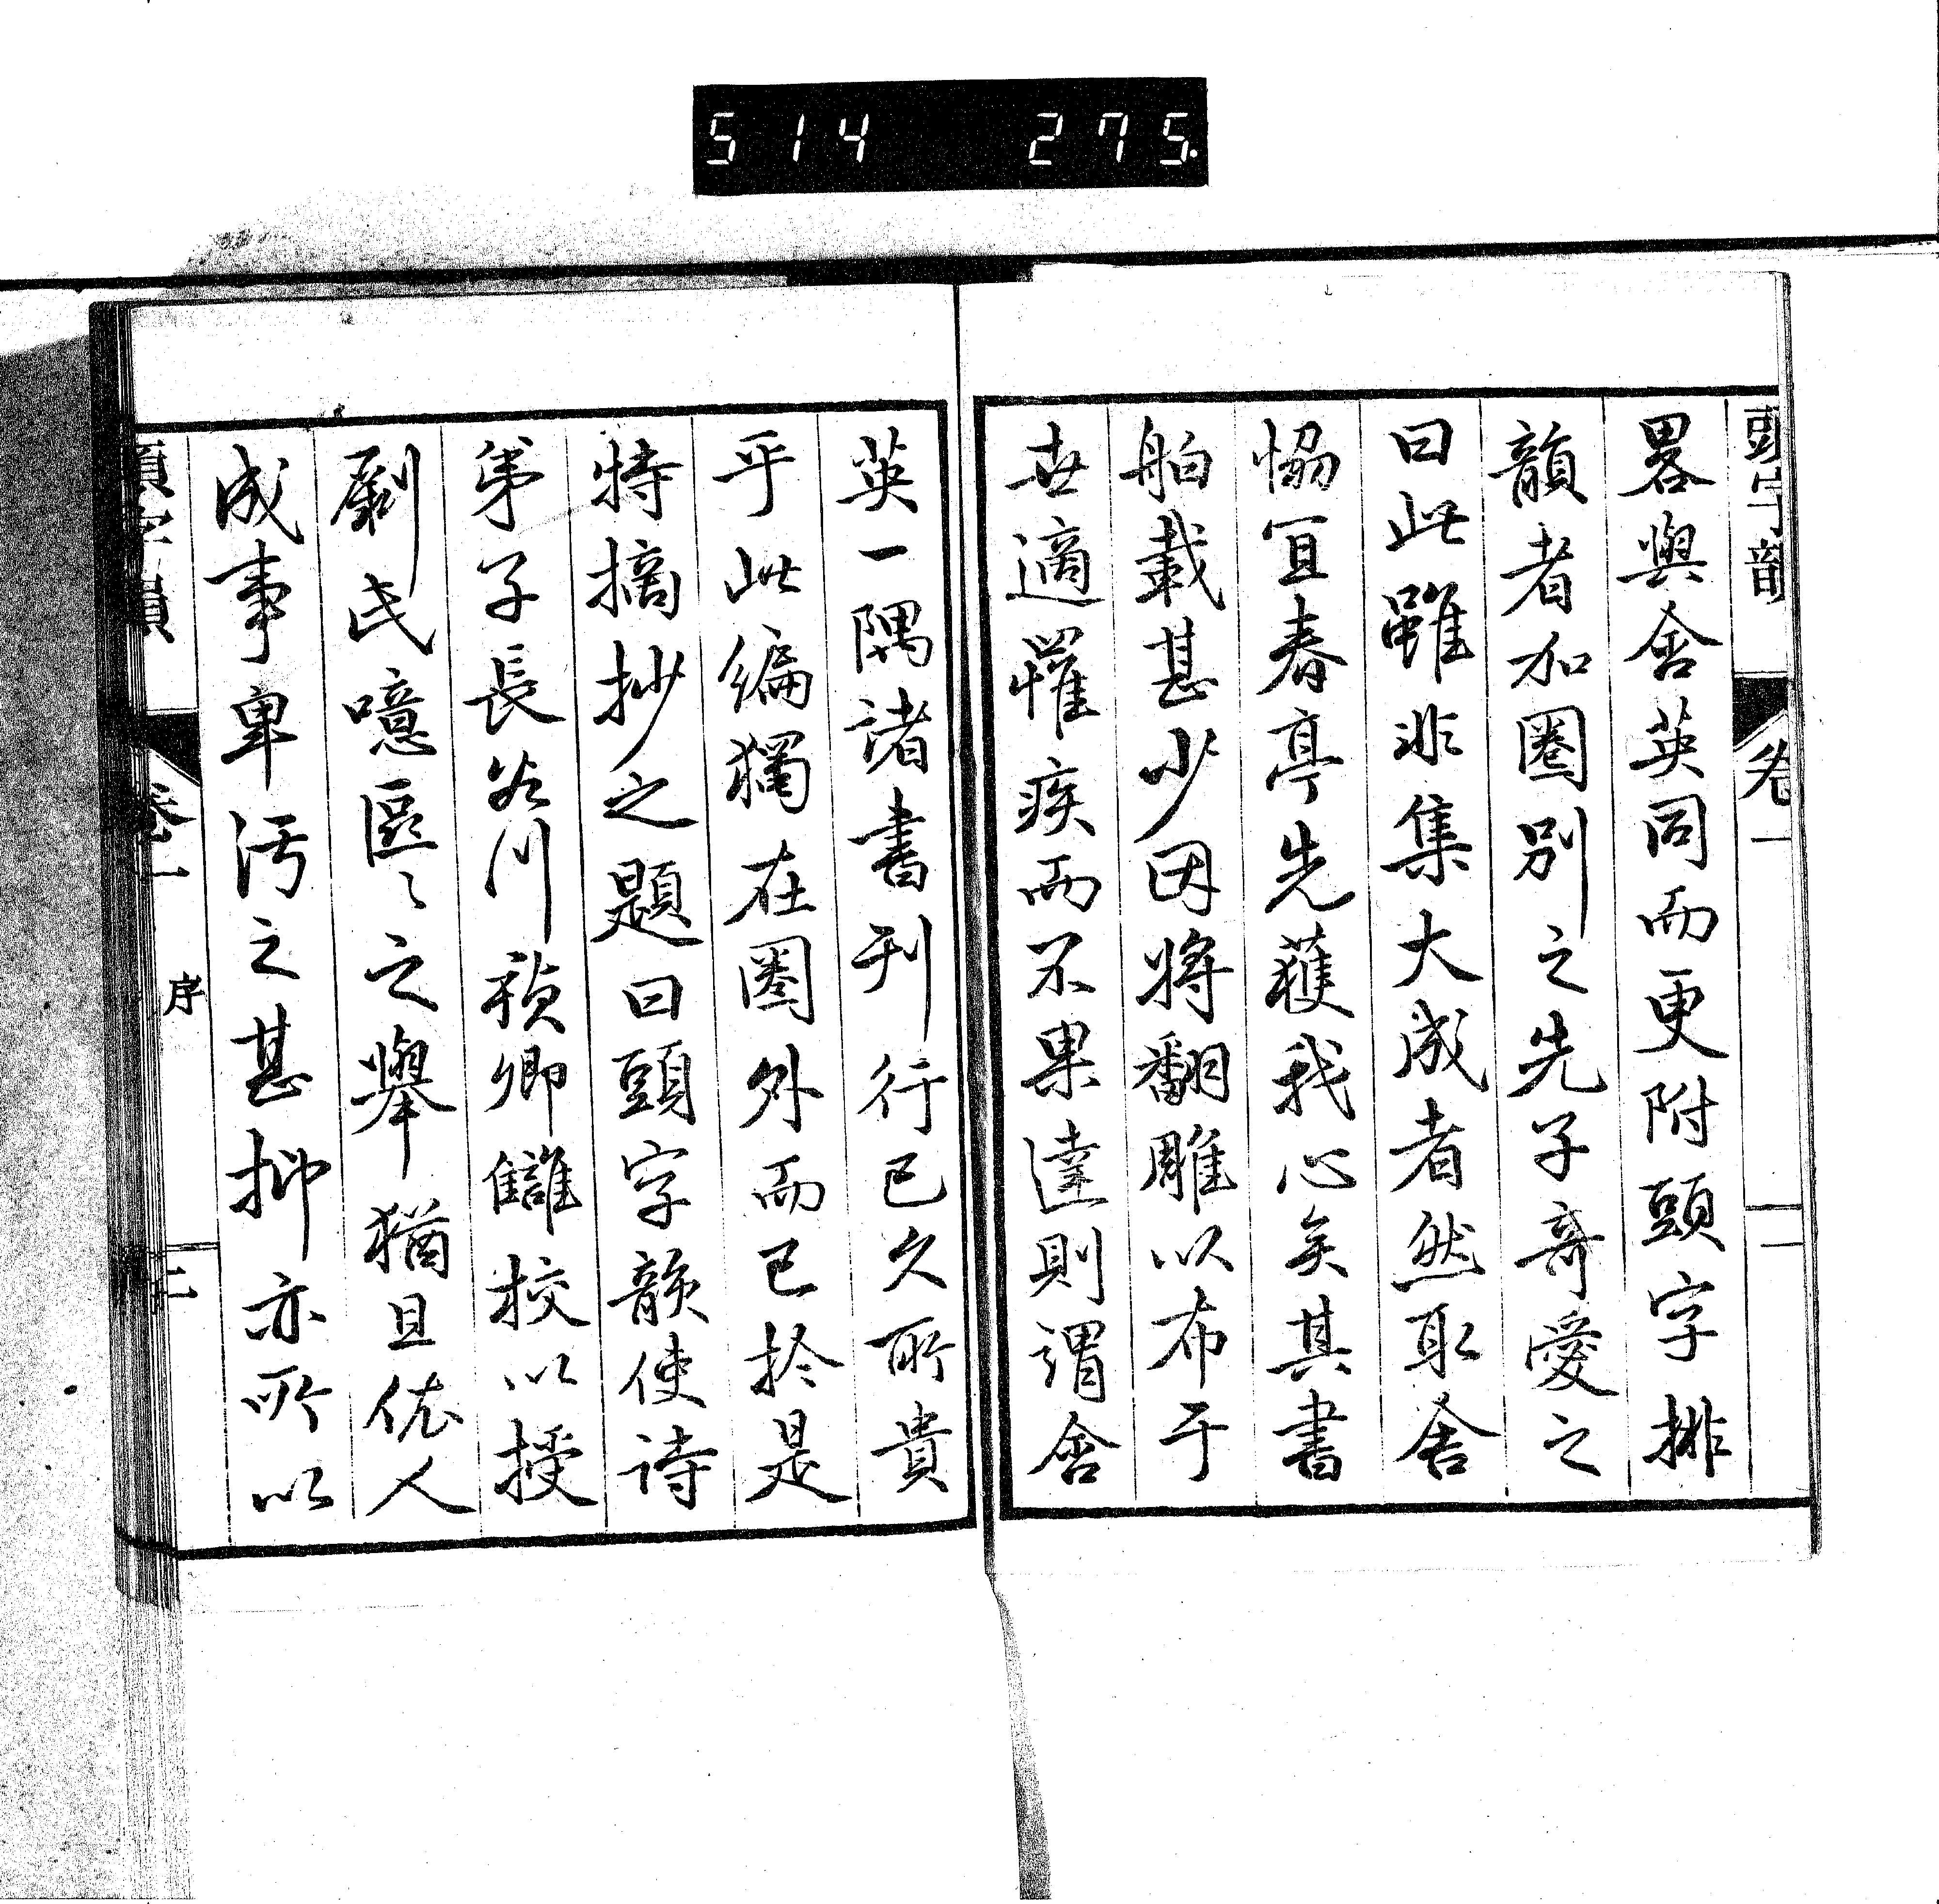 514 275.
頭字韻 卷一 二
畧與含英同而更附頭字排
韻者加圈別之先子奇愛之
曰此雖非集大成者然取舍
恊宜春亭先獲我心矣其書
舶載甚少因將翻雕以布于
世適罹疾而不果達則謂含
英一隅諸書刊行已久所貴
乎此編獨在圈外而已於是
特摘抄之題曰頭字韻使詩
弟子長谷川禎卿讎校以授
劂氏噫區〻之舉猶且依人
成事卑汚之甚抑亦所以
頭字韻 卷一 序 三